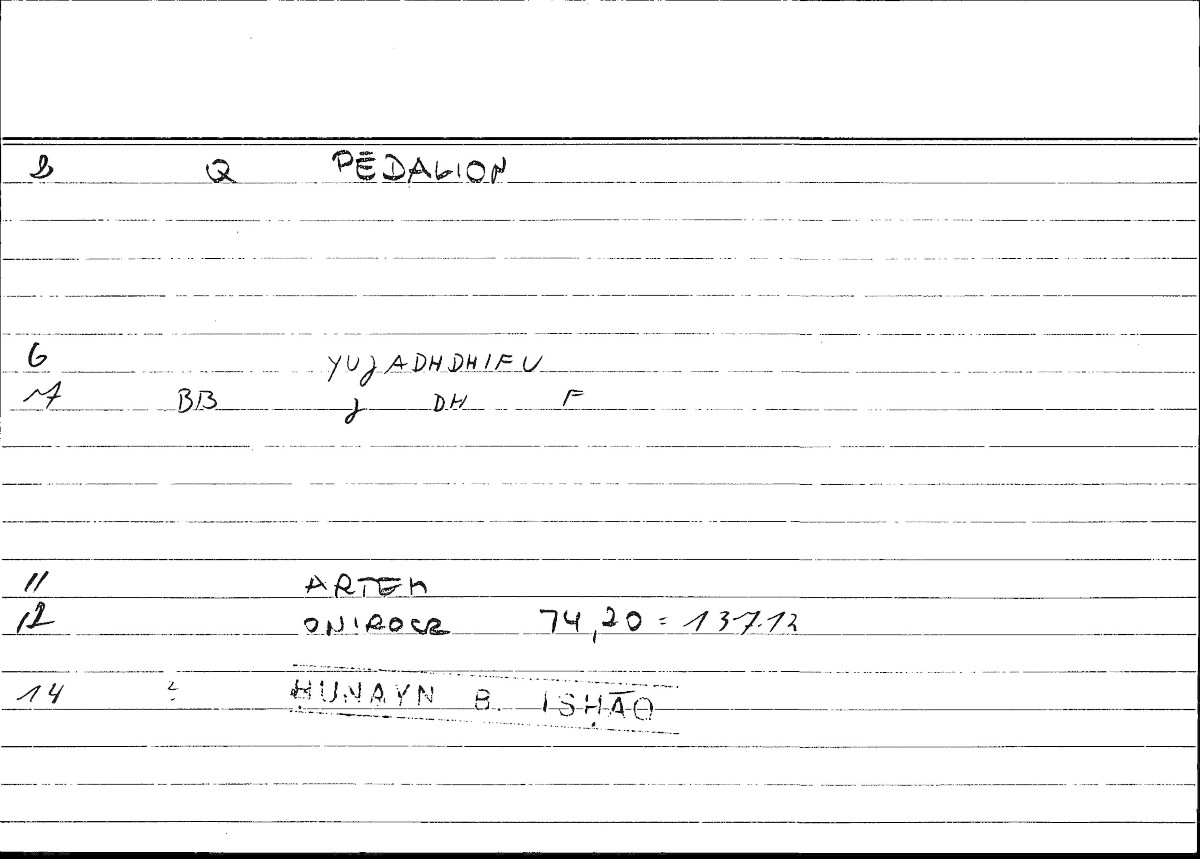 Q PĒDALION
6 YUJADHDHIFU
17 BB J DH F
11 ARTEM
12 ONIROCR 74,20 = 137.12
14 ḤUNAYN B. ISḤĀQ